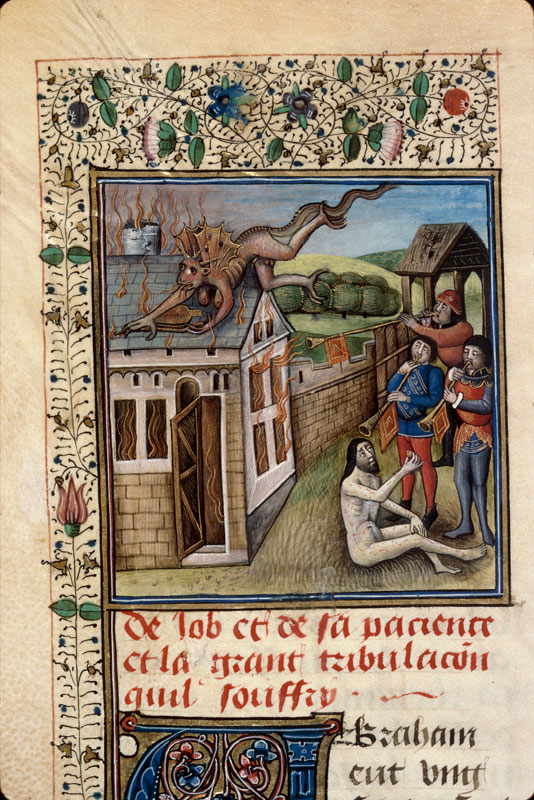 De Job et de sa pacience
et la grant tribulacõn
quil souffry .
Abraham
eut vng